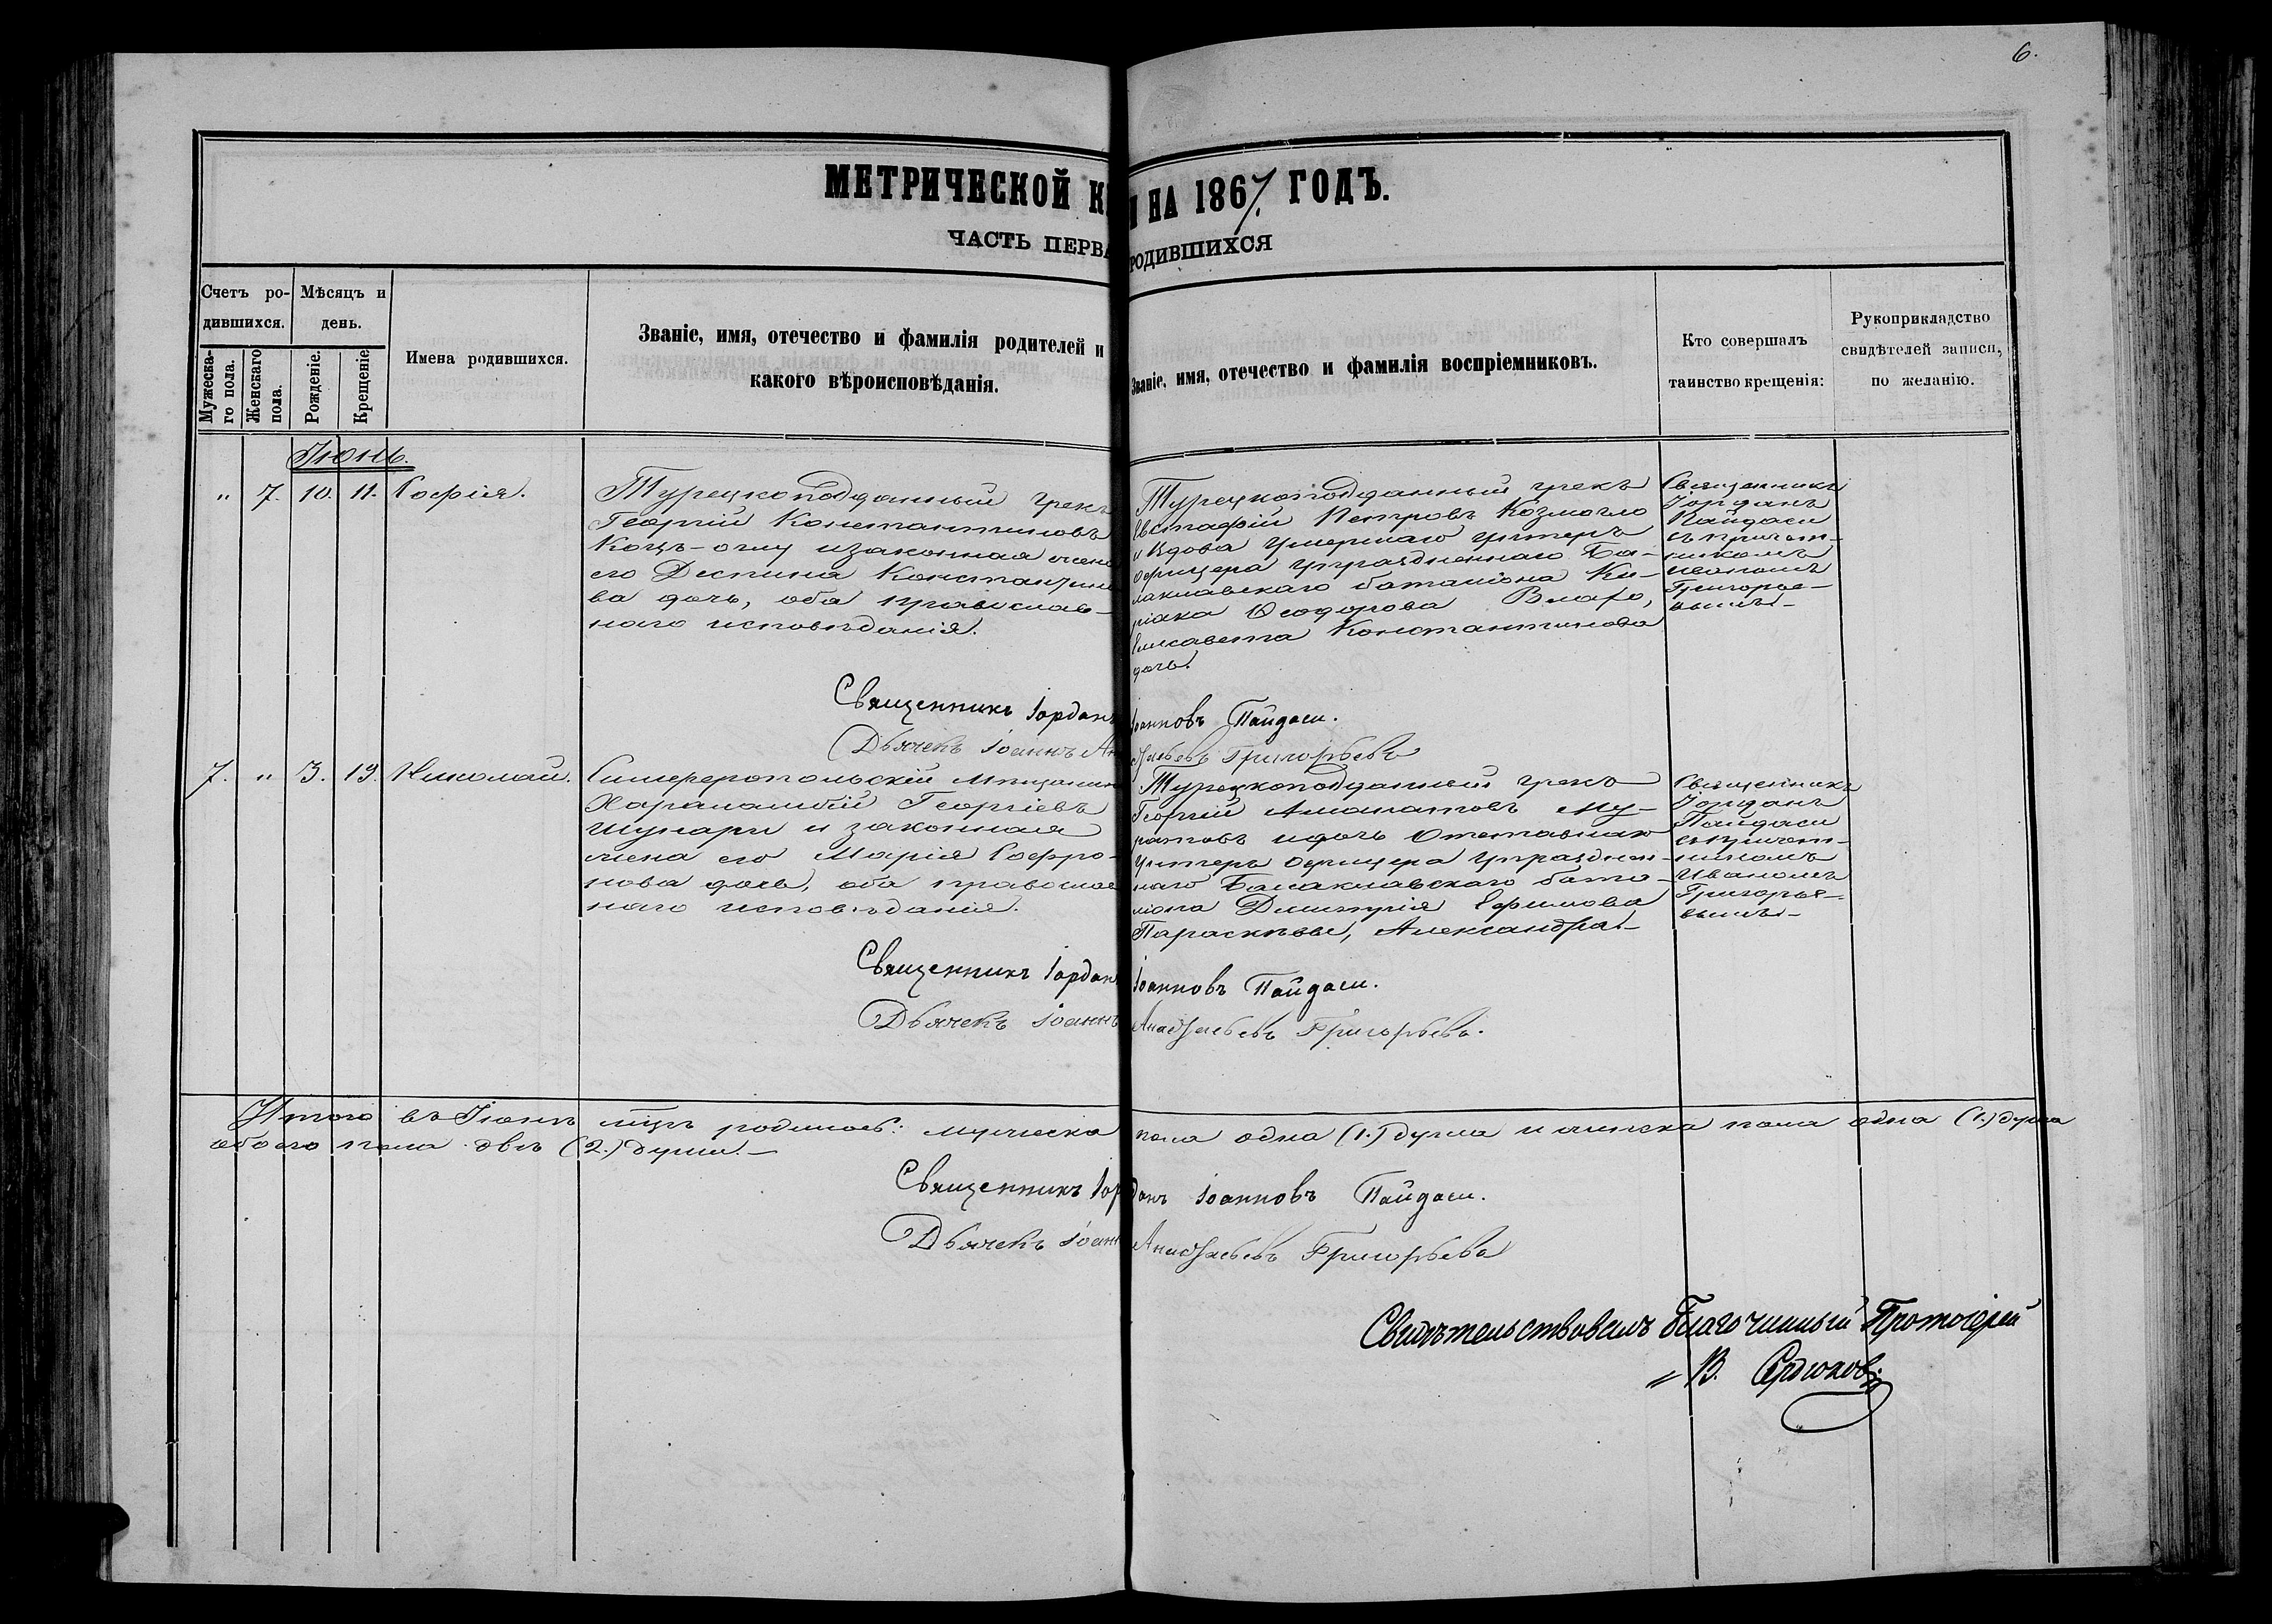 6.
МЕТРИЧЕСКОЙ К
И НА 1867 ГОДЪ.
ЧАСТЬ ПЕРВА
РОДИВШИХСЯ
Счетъ ро-
дившихся.
Мужеска-
го пола.
Женскаго
пола.
Мѣсяцъ и
день.
Рожденіе.
Крещеніе
Имена родившихся.
Званіе, имя, отечество и фамилія родителей и
какого вѣроисповѣданія.
Званіе, имя, отечество и фамилія воспріемниковъ.
Кто совершалъ
таинство крещенія:
Рукоприкладство
свидѣтелей записи,
по желанію.
Іюнь.
" 7. 10. 11. Софія.
Турецкоподданный грекъ
Георгій Константиновъ
Коцъ-оглу и законная жена
его Деспина Константино
ва дочь, оба православ-
наго исповѣданія.
Турецкоподданный грекъ
Евстафій Петровъ Козмогло
и Вдова умершаго унтеръ
офицера упраздненнаго Ба-
лаклавскаго баталіона Ки-
ріака Ѳеодорова Влахо,
Елисавета Константинова
дочь.
Священникъ
Іорданъ
Пайдаси
съ причет-
никомъ
Иваномъ
Григорье-
вымъ-
Священникъ Іорданъ Іоанновъ Пайдаси.
Дьячекъ Іоаннъ Анастасьевъ Григорьевъ
7. " 3. 19. Николай.
Симферопольскій мѣщанин
Харалампій Георгіевъ
и законная
жена его Марія Софро-
нова дочь, оба православ
наго исповѣданія.
Турецкоподданный грекъ
Георгій Аманатовъ Му-
ратовъ и дочь Отставнаго
Унтеръ Офицера упразднен-
наго Балаклавскаго бата-
ліона Димитрія Ефимова
Параскевы, Александра-
Священникъ
Іорданъ
Пайдаси
съ причет-
никомъ
Иваномъ
Григорье-
вымъ-
Священникъ Іорданъ Іоанновъ Пайдаси.
Дьячекъ Іоаннъ Анастасьевъ Григорьевъ.
Итого въ Іюнѣ мцѣ родилось: мужеска пола одна (1.) душа и женска пола одна (1.) душа
обоего пола двѣ (2.) души.-
Священникъ Іорданъ Іоанновъ Пайдаси.
Дьячекъ Іоаннъ Анастасьевъ Григорьевъ
Свидѣтельствовалъ Благочинный Протоіерей
" В. Сердюковъ